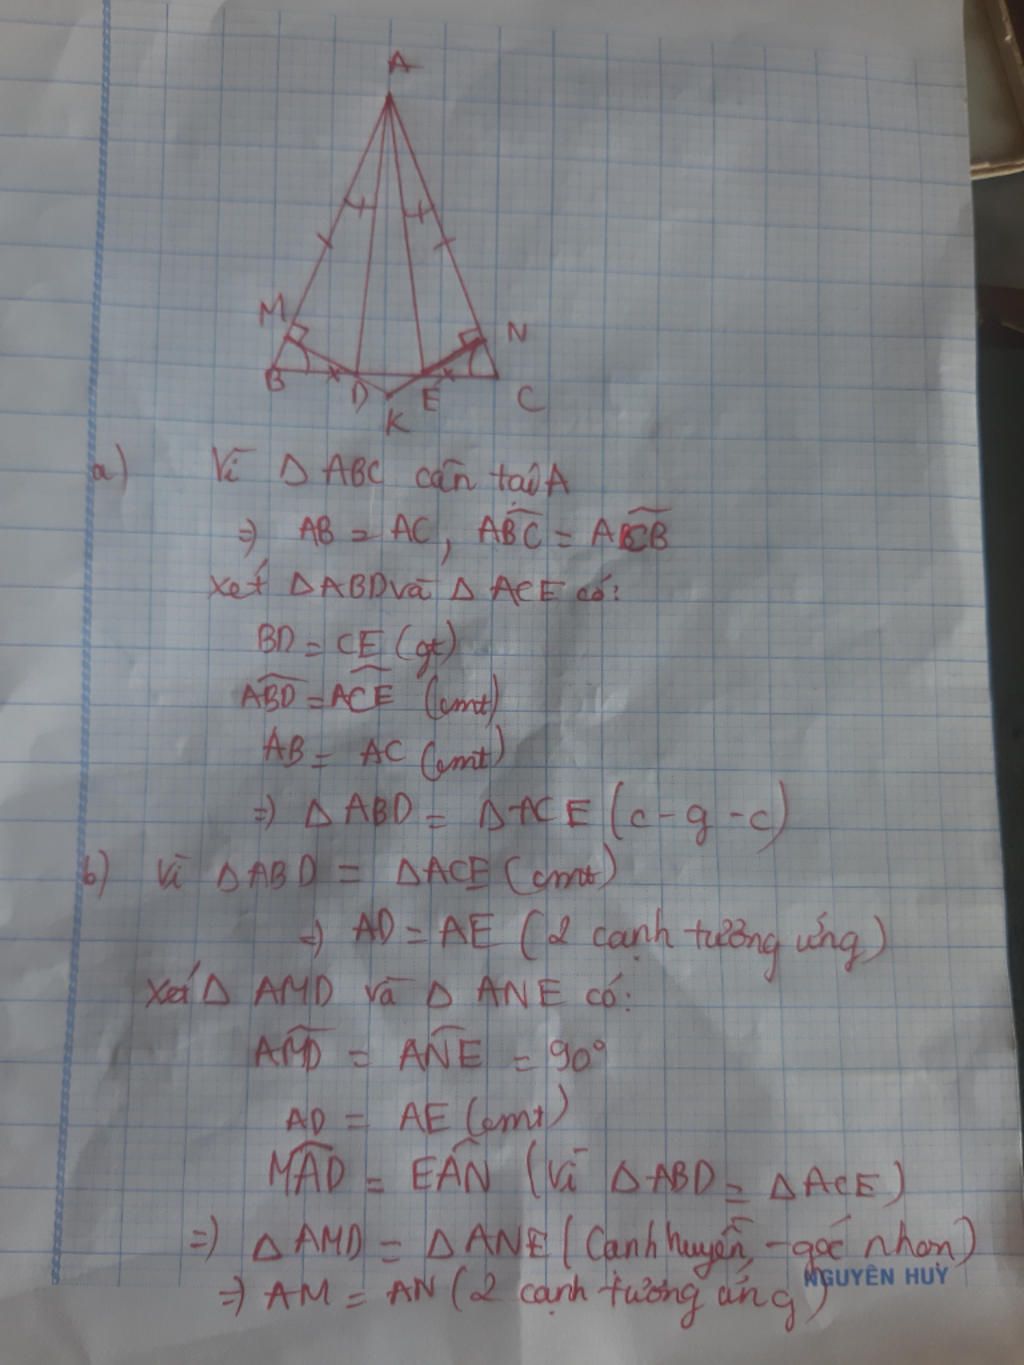 A
M
N
B
D
E
C
K
a) Vì Δ ABC cân tại A
=> AB = AC, ABC = ACB
xét Δ ABD và Δ ACE có:
BD = CE (gt)
ABD = ACE (cmt)
AB = AC (cmt)
=> Δ ABD = Δ ACE (c-g-c)
b) Vì Δ ABD = Δ ACE (cmt)
=> AD = AE (2 cạnh tương ứng)
xét Δ AMD và Δ ANE có:
AMD = ANE = 90°
AD = AE (cmt)
MAD = EAN (vì Δ ABD = Δ ACE)
=> Δ AMD = Δ ANE (Cạnh huyền - góc nhọn)
NGUYÊN HUY
=> AM = AN (2 cạnh tương ứng)